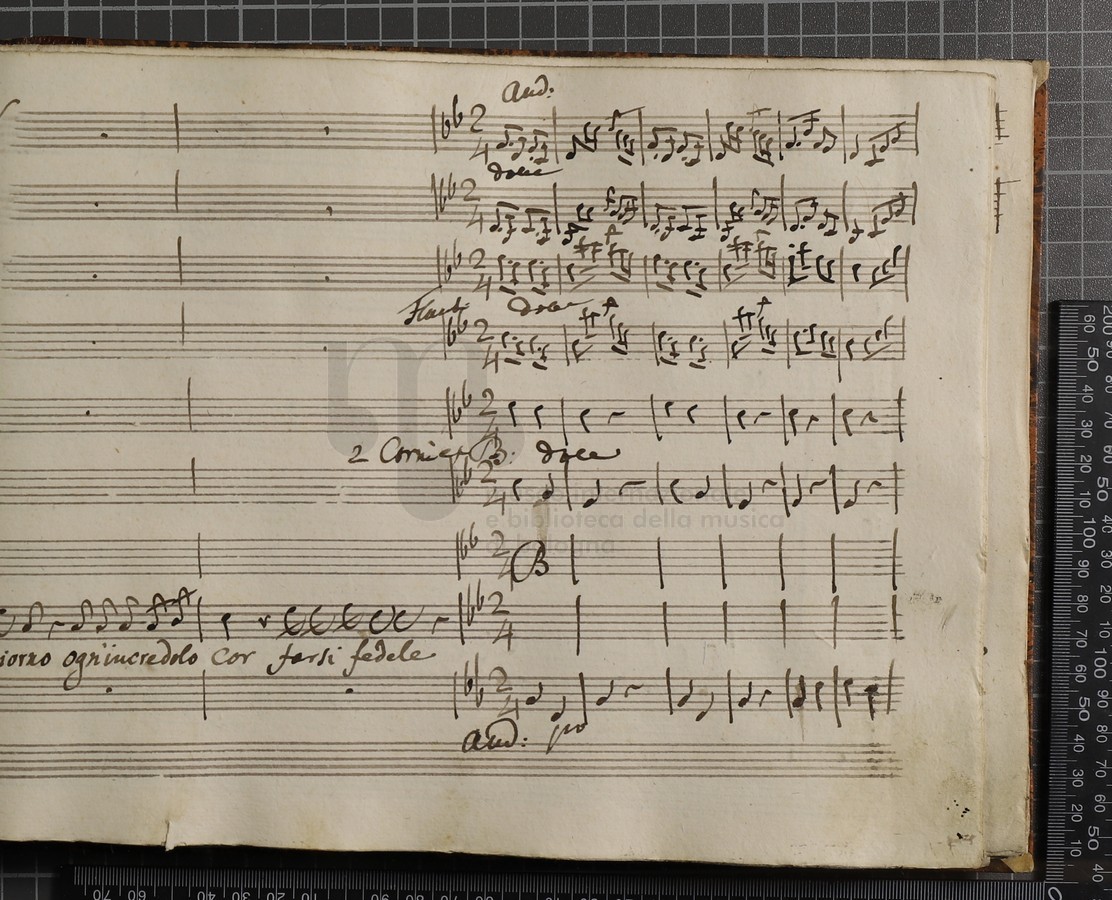 And:
dolce
Flauti dolce
2 Corni in B: dolce
B
iorno ogn'incredolo cor farsi fedele
And: po
museo internazionale
e biblioteca della musica
di bologna